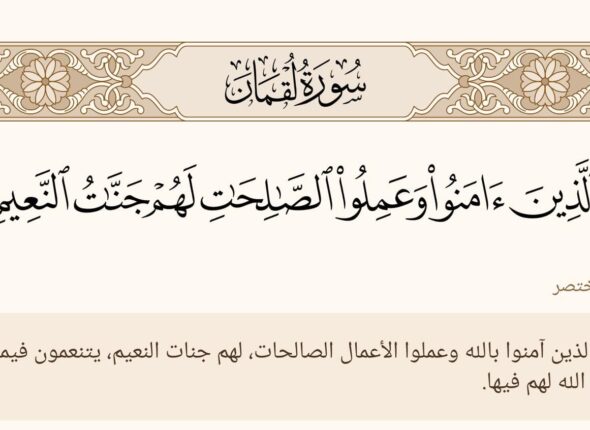 سُورَةُ لُقْمَانَ
ٱلَّذِينَ ءَامَنُوا۟ وَعَمِلُوا۟ ٱلصَّـٰلِحَـٰتِ لَهُمْ جَنَّـٰتُ ٱلنَّعِيمِ
ختصر
لذين آمنوا بالله وعملوا الأعمال الصالحات، لهم جنات النعيم، يتنعمون فيم
الله لهم فيها.